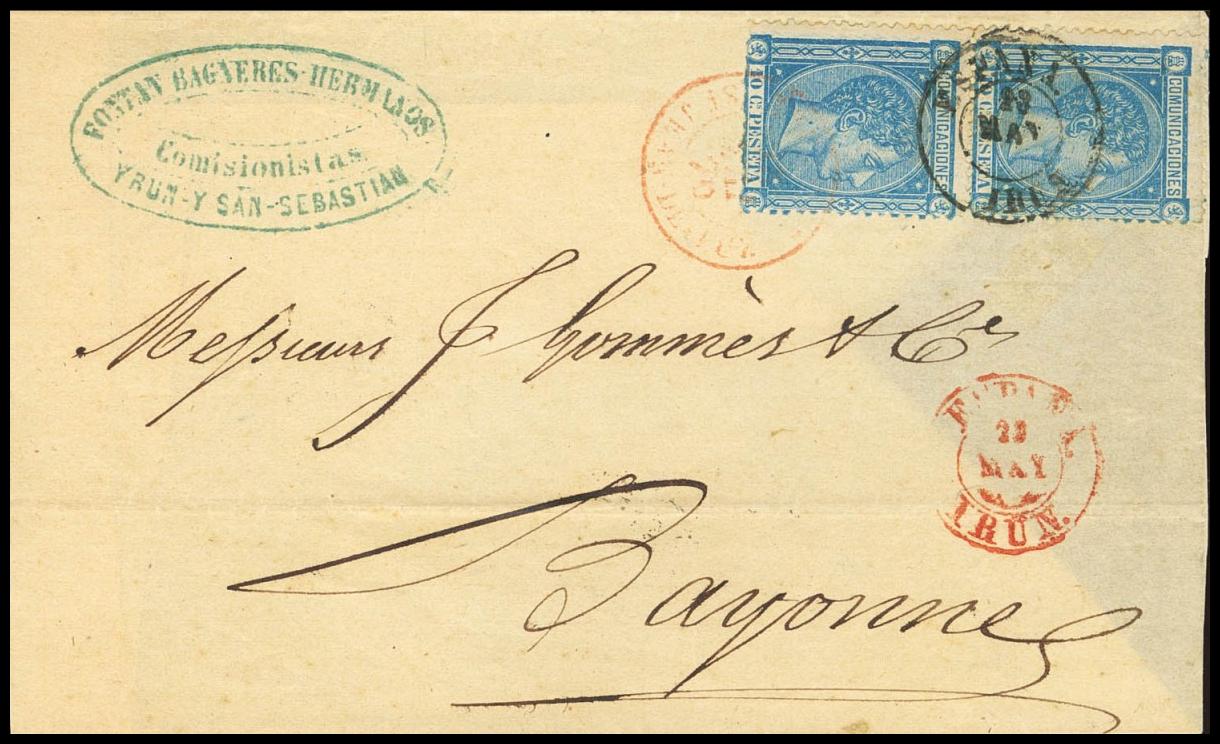 FONTAN BAGNERES-HERMANOS
Comisionistas
YRUN-Y SAN-SEBASTIAN
10 Cs PESETA
COMUNICACIONES
Cs PESETA
COMUNICACIONES
MAY
IRUN
Messieurs J Gommès & Cie
ESPAÑA
23
MAY
IRUN.
Bayonne